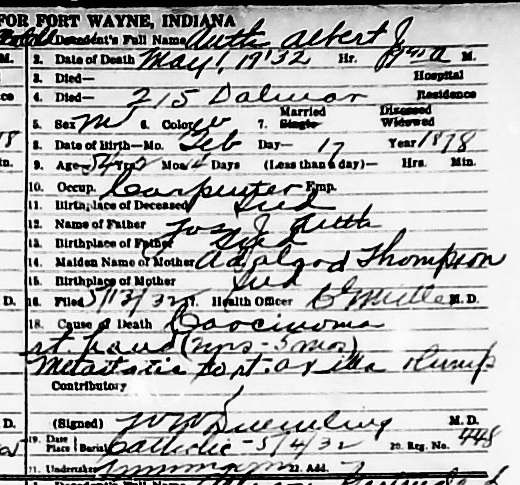 FOR FORT WAYNE, INDIANA
Decedent's Full Name Auth Albert J.
2. Date of Death May 1, 1932 Hr. A M.
3. Died— Hospital
4. Died— 215 Dalman Residence
5. Sex M 6. Color W 7. Married Single Diseased Widowed
8. Date of Birth—Mo. Feb Day— 17 Year 1878
9. Age 54 Yrs 2 Mos 14 Days (Less than a day)— Hrs. Min.
10. Occup. Carpenter Emp.
11. Birthplace of Deceased Ind
12. Name of Father Jos J. Auth
13. Birthplace of Father Ind
14. Maiden Name of Mother Thompson
15. Birthplace of Mother Ind
16. Filed 5/13/32 17. Health Officer Miller M. D.
18. Cause of Death Carcinoma
rt hand (2 yrs - 5 mos)
Metastatic to rt. axilla
Contributory
(Signed) M. D.
19. Date Place Burial Catholic - 5/4/32 20. Reg. No. 448
21. Undertaker 22. Add.
Decedent's Full Name